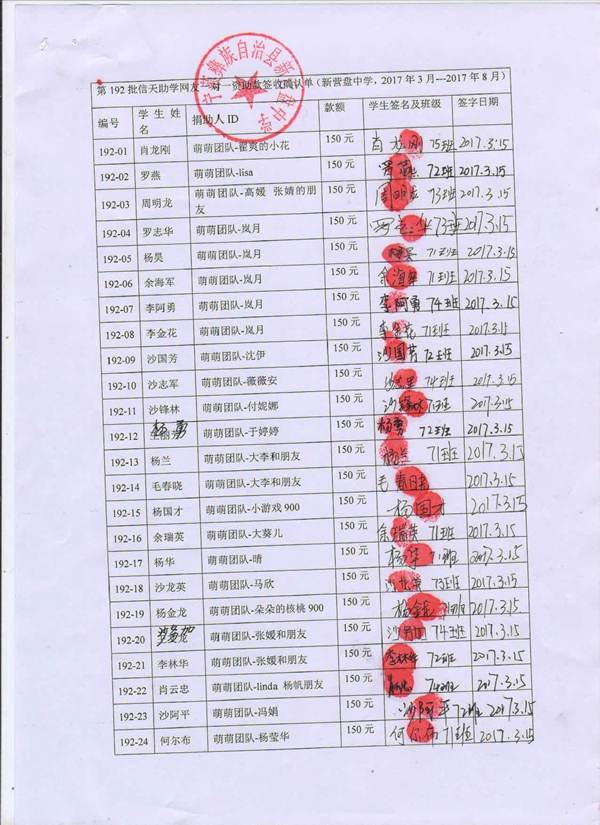 第 192 批信天助学网友一对一资助款签收确认单（新营盘中学，2017 年 3 月---2017 年 8 月）
宁蒗彝族自治县新营盘中学
编号 学生姓名 捐助人 ID 款额 学生签名及班级 签字日期
192-01 肖龙刚 萌萌团队-翟爽的小花 150 元 肖龙刚 75班 2017.3.15
192-02 罗燕 萌萌团队-lisa 150 元 罗燕 72班 2017.3.15
192-03 周明龙 萌萌团队-高媛 张婧的朋友 150 元 周明龙 73班 2017.3.15
192-04 罗志华 萌萌团队-岚月 150 元 罗志华 73班 2017.3.15
192-05 杨昊 萌萌团队-岚月 150 元 杨昊 71班 2017.3.15
192-06 余海军 萌萌团队-岚月 150 元 余海军 71班 2017.3.15
192-07 李阿勇 萌萌团队-岚月 150 元 李阿勇 74班 2017.3.15
192-08 李金花 萌萌团队-岚月 150 元 李金花 71班 2017.3.15
192-09 沙国芳 萌萌团队-沈伊 150 元 沙国芳 72班 2017.3.15
192-10 沙志军 萌萌团队-薇薇安 150 元 74班 2017.3.15
192-11 沙锋林 萌萌团队-付妮娜 150 元 沙锋林 73班 2017.3.15
192-12 杨勇 萌萌团队-于婷婷 150 元 杨勇 72班 2017.3.15
192-13 杨兰 萌萌团队-大李和朋友 150 元 杨兰 71班 2017.3.15
192-14 毛春晓 萌萌团队-大李和朋友 150 元 毛春晓 2017.3.15
192-15 杨国才 萌萌团队-小游戏 900 150 元 杨国才 2017.3.15
192-16 余瑞英 萌萌团队-大葵儿 150 元 余瑞英 71班 2017.3.15
192-17 杨华 萌萌团队-晴 150 元 杨华 71班 2017.3.15
192-18 沙龙英 萌萌团队-马欣 150 元 沙龙英 73班 2017.3.15
192-19 杨金龙 萌萌团队-朵朵的核桃 900 150 元 杨金龙 71班 2017.3.15
192-20 萌萌团队-张媛和朋友 150 元 74班 2017.3.15
192-21 李林华 萌萌团队-张媛和朋友 150 元 李林华 72班 2017.3.15
192-22 肖云忠 萌萌团队-linda 杨帆朋友 150 元 74班 2017.3.15
192-23 沙阿平 萌萌团队-冯娟 150 元 沙阿平 72班 2017.3.15
192-24 何尔布 萌萌团队-杨莹华 150 元 何尔布 71班 2017.3.15